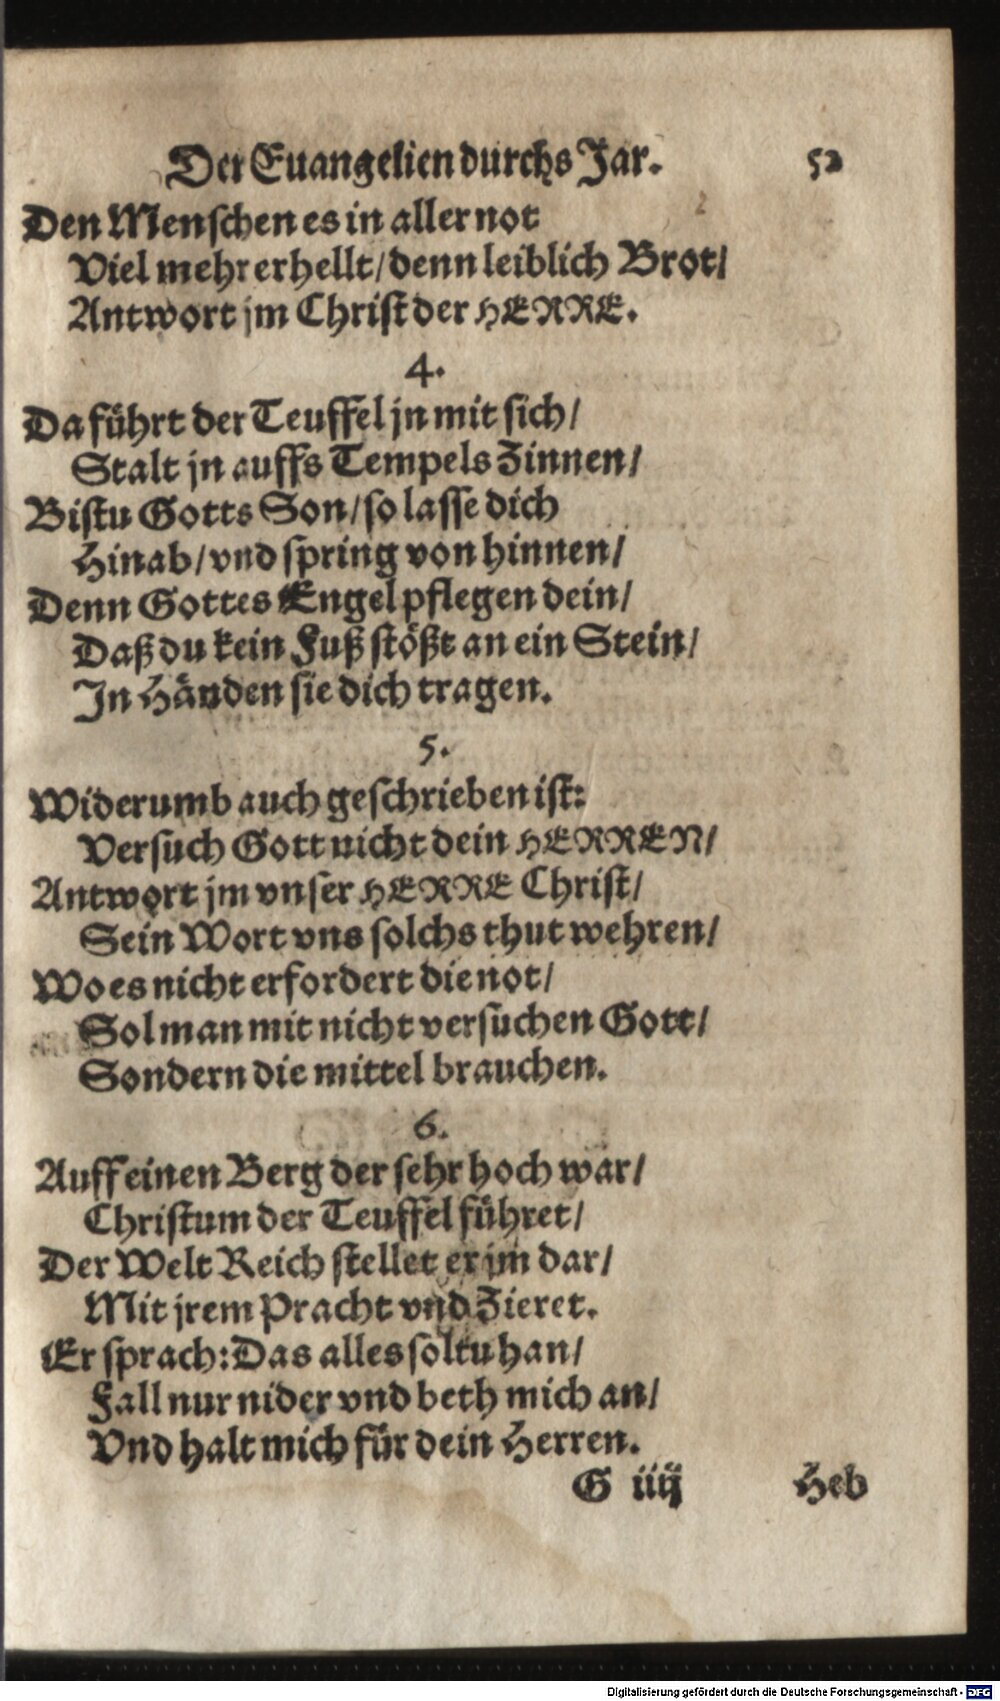 Der Euangelien durchs Jar. 52
Den Menschen es in aller not
Viel mehr erhellt/ denn leiblich Brot/
Antwort jm Christ der HERRE.
4.
Da führt der Teuffel jn mit sich/
Stalt jn auffs Tempels Zinnen/
Bistu Gotts Son/ so lasse dich
Hinab/ vnd spring von hinnen/
Denn Gottes Engel pflegen dein/
Daß du kein Fuß stößt an ein Stein/
In Händen sie dich tragen.
5.
Widerumb auch geschrieben ist:
Versuch Gott nicht dein HERREN/
Antwort jm vnser HERRE Christ/
Sein Wort vns solchs thut wehren/
Wo es nicht erfordert die not/
Sol man mit nicht versuchen Gott/
Sondern die mittel brauchen.
6.
Auff einen Berg der sehr hoch war/
Christum der Teuffel führet/
Der Welt Reich stellet er jm dar/
Mit jrem Pracht vnd Zieret.
Er sprach: Das alles soltu han/
Fall nur nider vnd beth mich an/
Vnd halt mich für dein Herren.
G iiij Heb
Digitalisierung gefördert durch die Deutsche Forschungsgemeinschaft - DFG